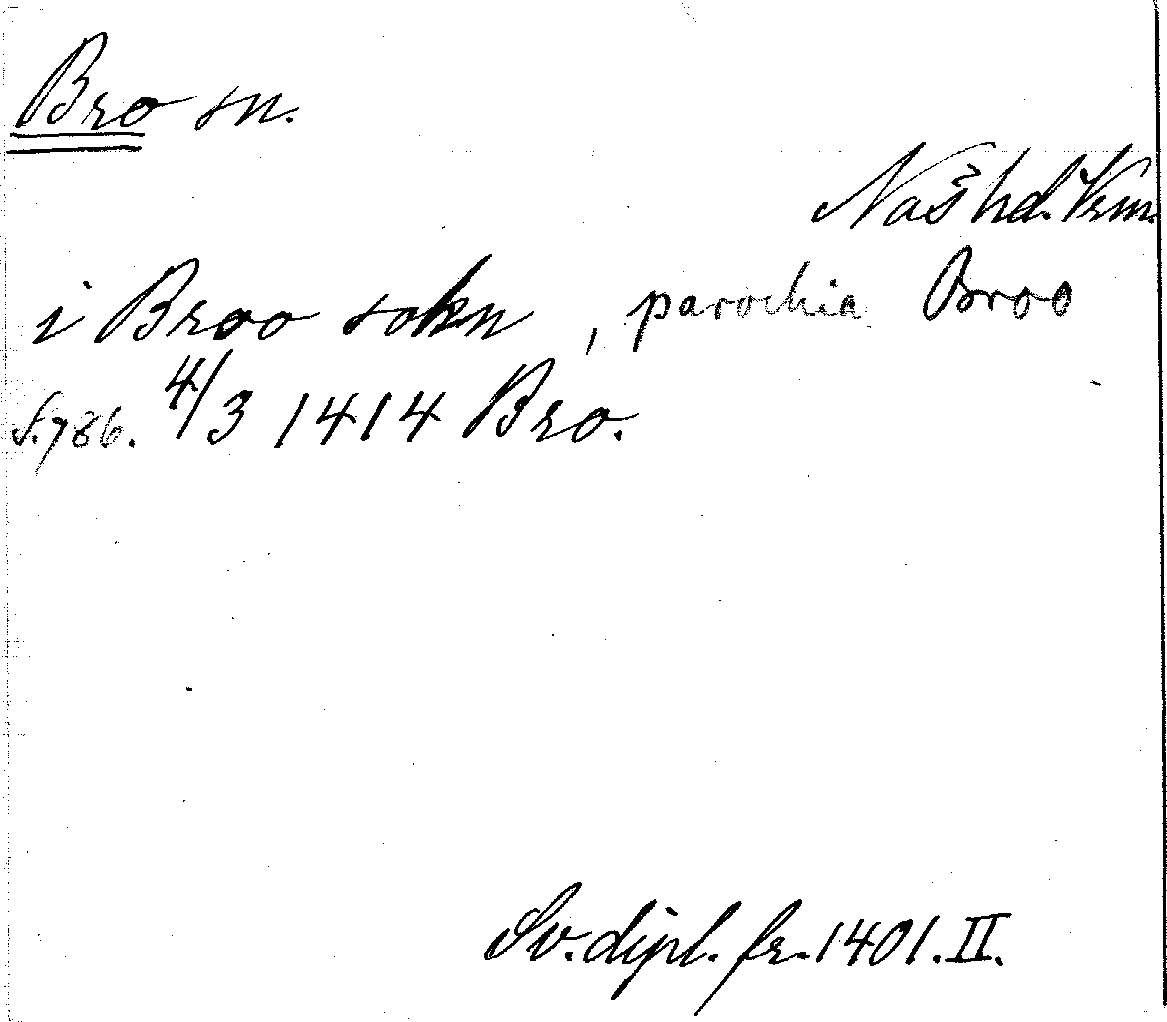 Bro sn.
Näs hd. Vrm.
i Broo sokn, parochia Broo
S. 786. 4/3 1414 Bro.
Sv. dipl. fr. 1401. II.